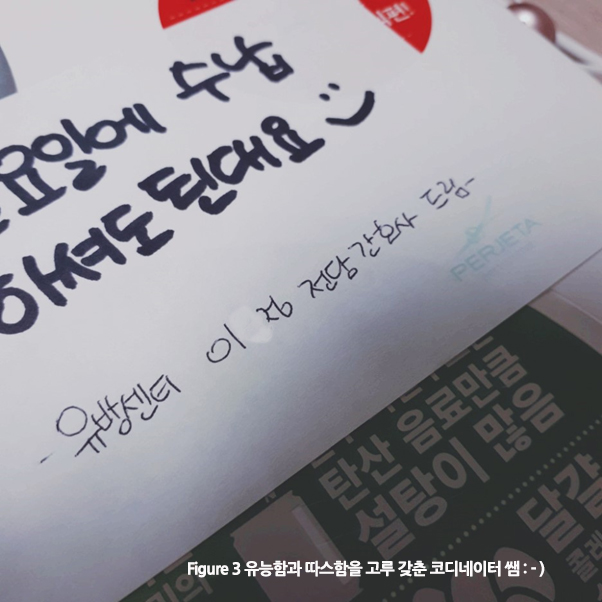 편!
요일에 수납
하셔도 된대요 :)
- 유방센터 이 정 전담간호사 드림-
PERJETA
탄산 음료만큼
설탕이 많음
달걀
콜레
Figure 3 유능함과 따스함을 고루 갖춘 코디네이터 쌤 : - )